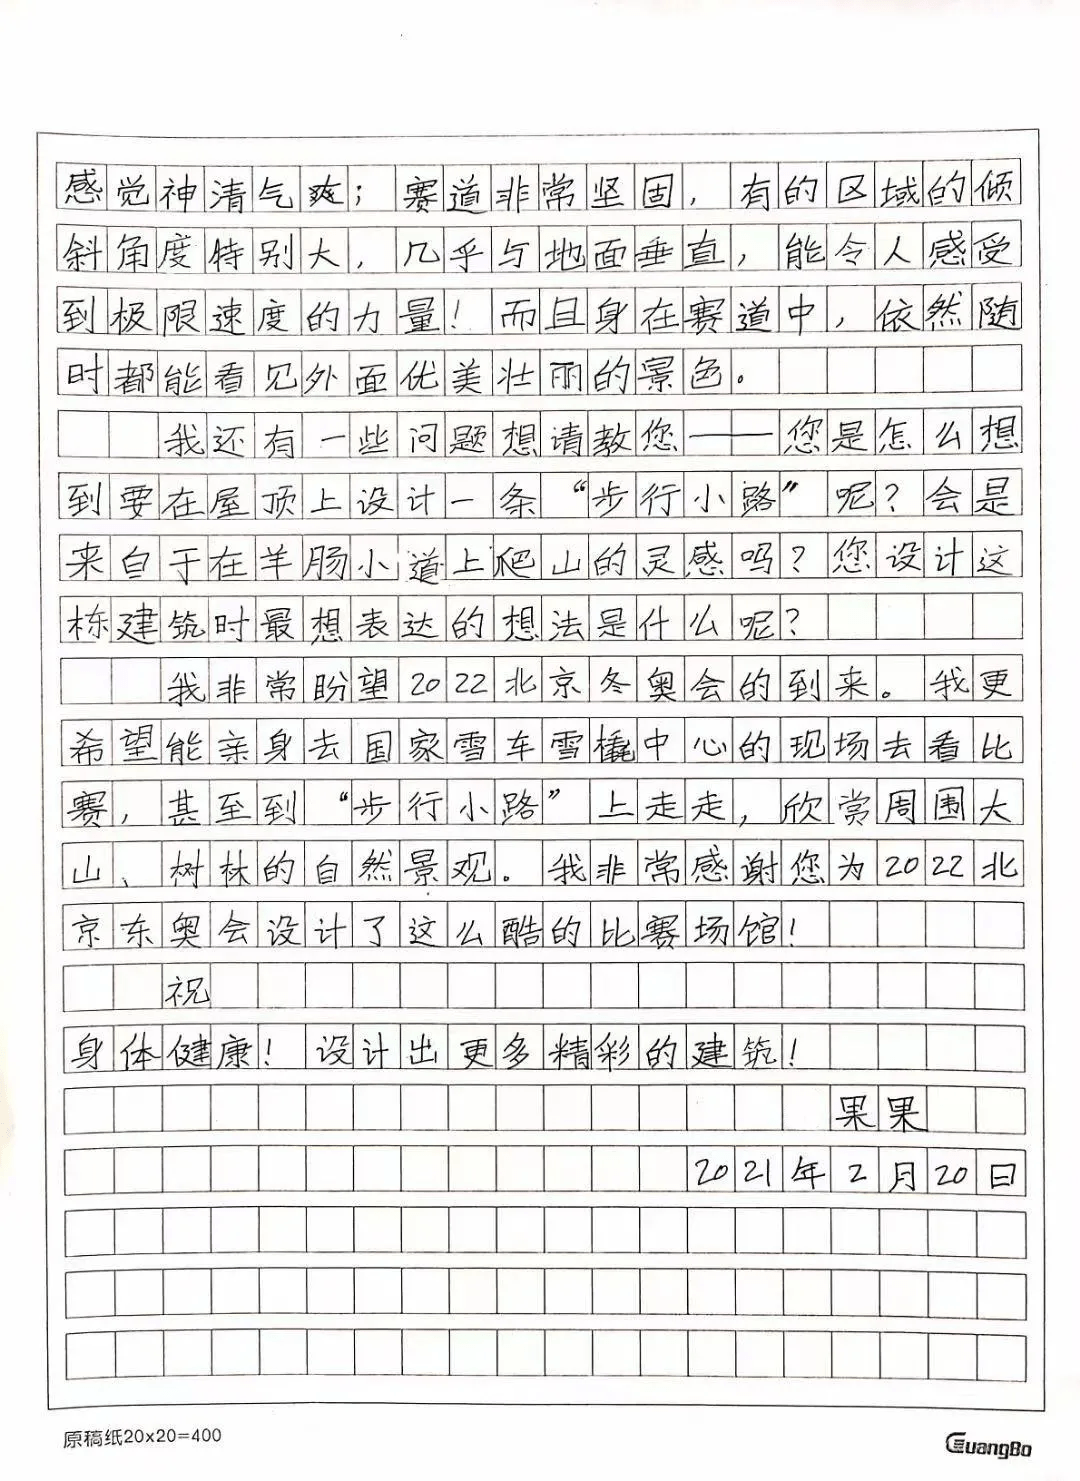 感觉神清气爽；赛道非常坚固，有的区域的倾
斜角度特别大，几乎与地面垂直，能令人感受
到极限速度的力量！而且身在赛道中，依然随
时都能看见外面优美壮丽的景色。
我还有一些问题想请教您——您是怎么想
到要在屋顶上设计一条“步行小路”呢？会是
来自于在羊肠小道上爬山的灵感吗？您设计这
栋建筑时最想表达的想法是什么呢？
我非常盼望2022北京冬奥会的到来。我更
希望能亲身去国家雪车雪橇中心的现场去看比
赛，甚至到“步行小路”上走走，欣赏周围大
山、树林的自然景观。我非常感谢您为2022北
京东奥会设计了这么酷的比赛场馆！
祝
身体健康！设计出更多精彩的建筑！
果果
2021年2月20日
原稿纸20x20=400
GuangBo